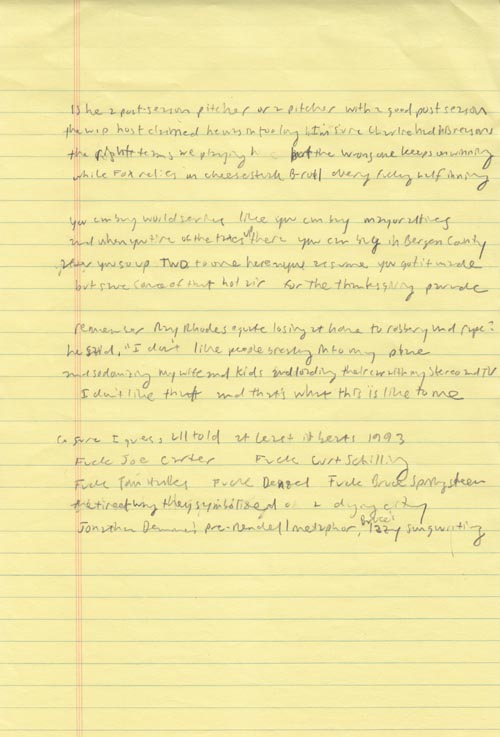 Is he a post-season pitcher or a pitcher with a good post season
the WIP host claimed he was in too long I'm sure Charlie had his reasons
the right teams we playing but the wrong one keeps on winning
while Fox relies on cheesesteak B-roll every fucking half inning
you can buy world series like you can buy mayoralties
and when you tire of the taxes there you can buy in Bergen County
you go up TWO to one here you assume you got it made
but save some of that hot air for the thanksgiving parade
remember Ray Rhodes equate losing at home to robbery and rape?
he said, "I don't like people breaking into my place
and sodomizing my wife and kids and loading their car with my stereo and TV
I don't like theft and that's what this is like to me
So sure I guess, all told at least it beats 1993
Fuck Joe Carter Fuck Curt Schilling
Fuck Tom Hanks Fuck Denzel Fuck Bruce Springsteen
the tired way they symbolized a dying city
Jonathan Demme's pre-Rendell metaphor, Bruce's lazy songwriting